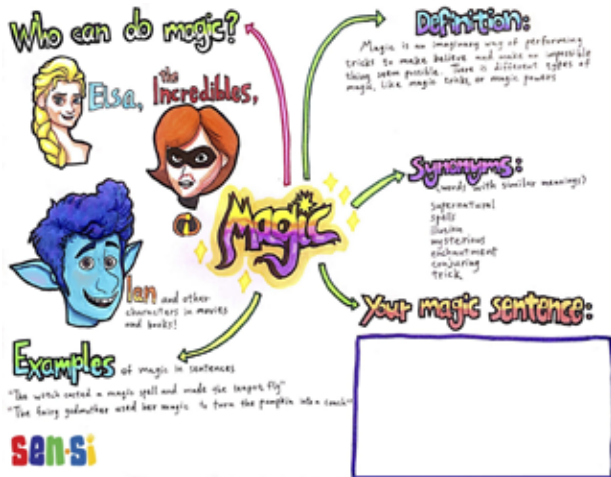 Who can do magic?
Elsa,
the
Incredibles,
Ian and other
characters in movies
and books!
Magic
Definition:
Magic is an imaginary way of performing
tricks to make believe and make an impossible
thing seem possible. There is different types of
magic, like magic tricks, or magic powers
Synonyms:
(words with similar meanings)
supernatural
spells
illusion
mysterious
enchantment
conjuring
trick
Your magic sentence:
Examples of magic in sentences
"The witch casted a magic spell and made the teapot fly"
"The fairy godmother used her magic to turn the pumpkin into a coach"
sen·si